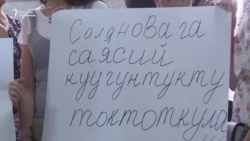 Солановага
саясий
куугунтукту
токтоткула